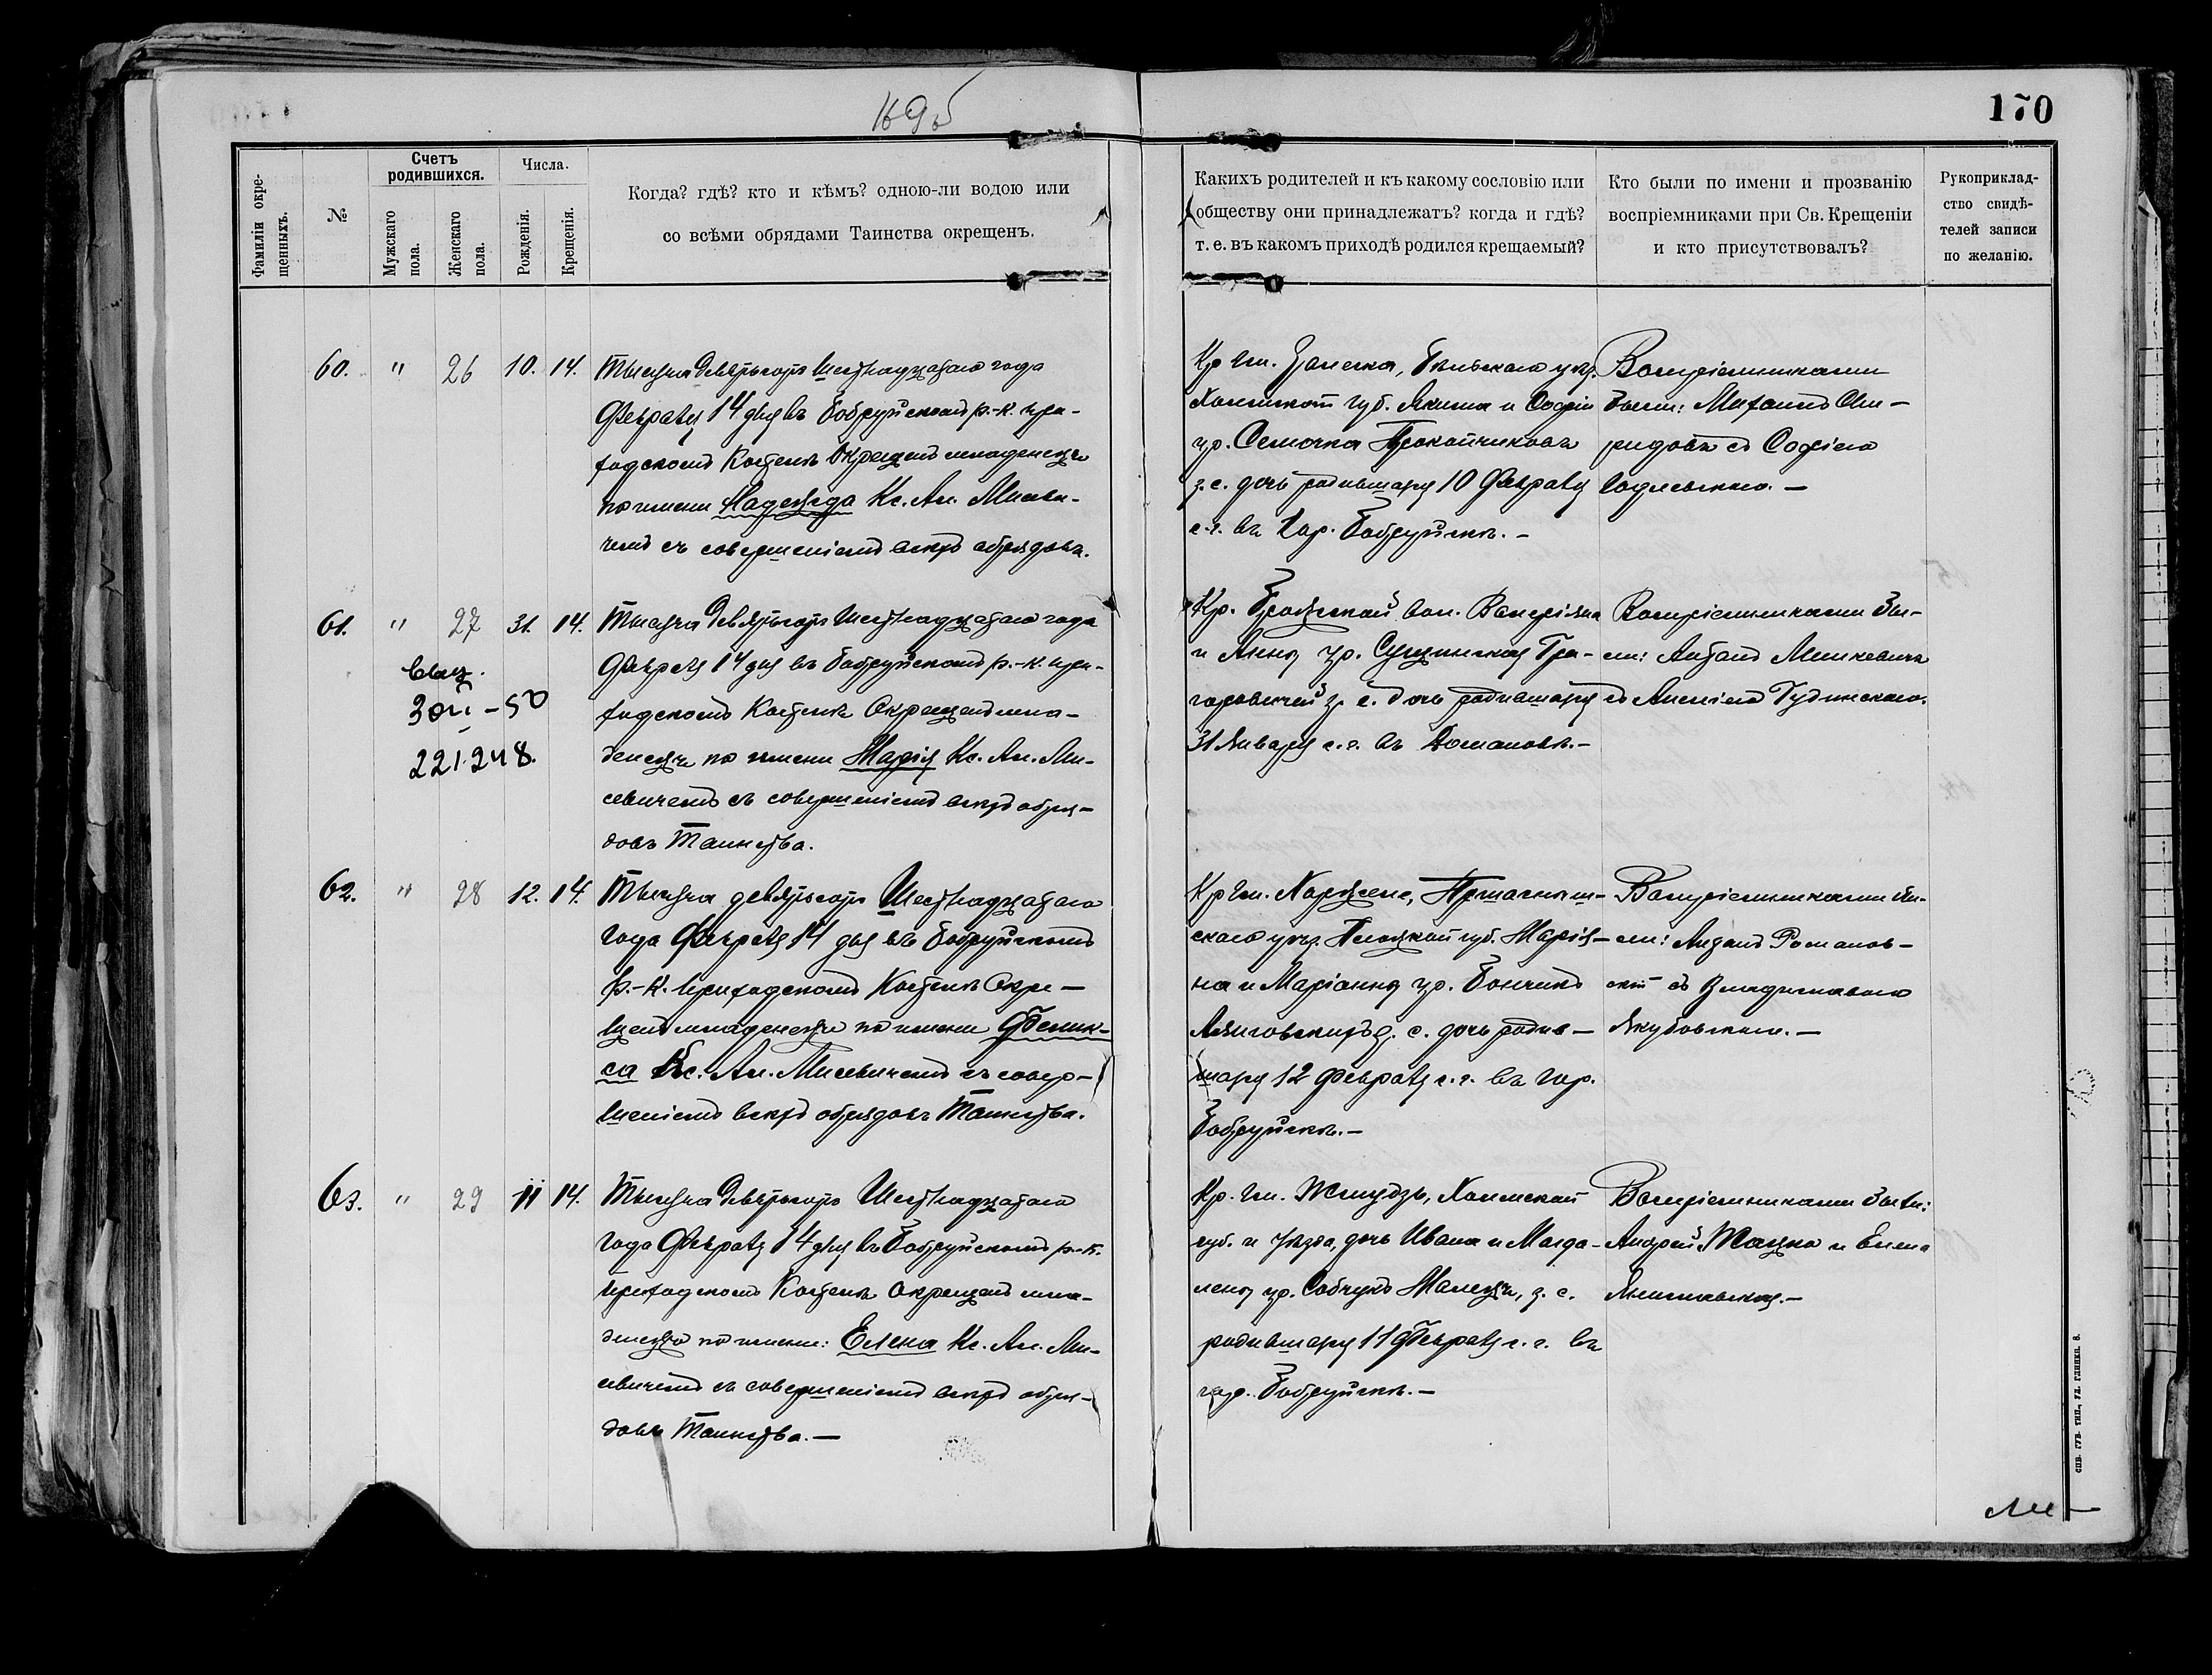 169б
170
Фамиліи окре-
щенныхъ.
№
Счетъ
родившихся.
Мужскаго
пола.
Женскаго
пола.
Числа.
Рожденія.
Крещенія.
Когда? гдѣ? кто и кѣмъ? одною-ли водою или
со всѣми обрядами Таинства окрещенъ.
Какихъ родителей и къ какому сословію или
обществу они принадлежатъ? когда и гдѣ?
т. е. въ какомъ приходѣ родился крещаемый?
Кто были по имени и прозванію
воспріемниками при Св. Крещеніи
и кто присутствовалъ?
Рукоприклад-
ство свидѣ-
телей записи
по желанію.
60. " 26 10. 14.
Тысяча девятьсотъ Шестнадцатаго года
Февраля 14 дня въ Бобруйскомъ р.-к. при-
ходскомъ Костелѣ Окрещенъ младенецъ
по имени Надежда Кс. Ал. Мисеви-
чемъ съ совершеніемъ всѣхъ обрядовъ.
Кр. гм.
Холмской губ. Якима и Софіи
ур. Прокопчиковъ
з. с. дочь родившаяся 10 Февраля
с. г. въ гор. Бобруйскѣ. -
Воспріемниками
были:
съ Софіею
61. " 27 31. 14.
выд.
30/I - 50
221248.
Тысяча девятьсотъ Шестнадцатаго года
Февраля 14 дня въ Бобруйскомъ р.-к. при-
ходскомъ Костелѣ Окрещенъ мла-
денецъ по имени Марія Кс. Ал. Ми-
севичемъ съ совершеніемъ всѣхъ обря-
довъ Таинства.
Кр. вол. Валеріана
и Анны ур. Гри-
горовичей з. с. дочь родившаяся
31 Января с. г. въ
Воспріемниками бы-
ли: Антонъ Минкевичъ
62. " 28 12. 14.
Тысяча девятьсотъ Шестнадцатаго
года Февраля 14 дня въ Бобруйскомъ
р.-к. приходскомъ Костелѣ Окре-
щенъ младенецъ по имени Фелик-
са Кс. Ал. Мисевичемъ съ совер-
шеніемъ всѣхъ обрядовъ Таинства.
Кр. гм.
скаго уѣз. Плоцкой губ.
на и Маріанны ур. Бончикъ
з. с. дочь родив-
шаяся 12 Февраля с. г. въ гор.
Бобруйскѣ. -
Воспріемниками бы-
ли: Романов-
скій съ Владиславою
Якубовскою. -
63. " 29 11 14.
Тысяча девятьсотъ Шестнадцатаго
года Февраля 14 дня въ Бобруйскомъ р.-к.
приходскомъ Костелѣ Окрещенъ мла-
денецъ по имени: Елена Кс. Ал. Ми-
севичемъ съ совершеніемъ всѣхъ обря-
довъ Таинства. -
Кр. гм. Жмудзь, Холмской
губ. и уѣзда, дочь Ивана и Магда-
лены ур. Собчукъ з. с.
родившаяся 11 Февраля с. г. въ
гор. Бобруйскѣ. -
Воспріемниками были:
Андрей и Елена
СПБ. ГУБ. ТИП., УЛ. ГЛИНКИ, 8.